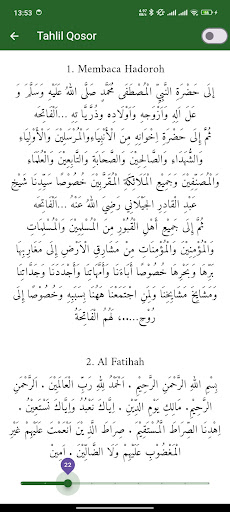 13:53
Tahlil Qosor
1. Membaca Hadoroh
إِلَى حَضْرَةِ النَّبِيِّ الْمُصْطَفَى مُحَمَّدٍ صَلَّى اللهُ عَلَيْهِ وَسَلَّمَ وَ
عَلَى آلِهِ وَأَزْوَجِهِ وَأَوْلَادِهِ وَذُرِّيَّا تِهِ ...اَلْفَاتِحَه
ثُمَّ إِلَى حَضْرَةِ إِخْوَانِهِ مِنَ الْأَنْبِيَاءِوَالْمُرْسَلِيْنَ وَالْأَوْلِيَاءِ
وَالشُّهَدَاءِ وَالصَّالِحِيْنَ وَالصَّحَابَةِ وَالتَّابِعِيْنَ وَالْعُلَمَاءِ
وَالْمُصَنِّفِيْنَ وَجَمِيْعِ الْمَلَائِكَةِ الْمُقَرَّبِيْنَ خُصُوْصًا سَيِّدِنَا شَيْخِ
عَبْدِ القَادِرِ الْجَيْلَانِي رَضِيَ اللهُ عَنْهُ ...الْفَاتِحَه
ثُمَّ إِلَى جَمِيْعِ أَهْلِ الْقُبُوْرِ مِنَ الْمُسْلِمِيْنَ وَالْمُسْلِمَاتِ
وَالْمُؤْمِنِيْنَ وَالْمُؤْمِنَاتِ مِنْ مَشَارِقِ الْاَرْضِ إِلَى مَغَارِبِهَا
بَرِّهَا وَبَحْرِهَا خُصُوْصًا أَبَاءَنَا وَأُمَّهَاتِنَا وَأَجْدَدَنَا وَجَدَّاتِنَا
وَمَشَايِخَ مَشَايِخِنَا وَلِمَنِ اجْتَمَعْنَا هَهُنَا بِسَبَبِهِ وَخُصُوْصًا إِلَى
رُوْحِ......، لَهُمُ الْفَاتِحَةُ
2. Al Fatihah
بِسْمِ اللهِ الرَّحْمَنِ الرَّحِيْمِ . اَلْحَمْدُ لِلَّهِ رَبِّ الْعَالَمِيْنَ . اَلرَّحْمَنِ
الرَّحِيْمِ. مَالِكِ يَوْمِ الدِّيْنِ . إِيَّاكَ نَعْبُدُ وَإِيَّاكَ نَسْتَعِيْنُ .
اِهْدِنَا الصِّرَاطَ الْمُسْتَقِيْمَ . صِرَاطَ الَّذِيْنَ اَنْعَمْتَ عَلَيْهِمْ غَيْرِ
الْمَغْضُوْبِ عَلَيْهِمْ وَلَا الضَّالِّيْنَ . اَمِيْنَ
22